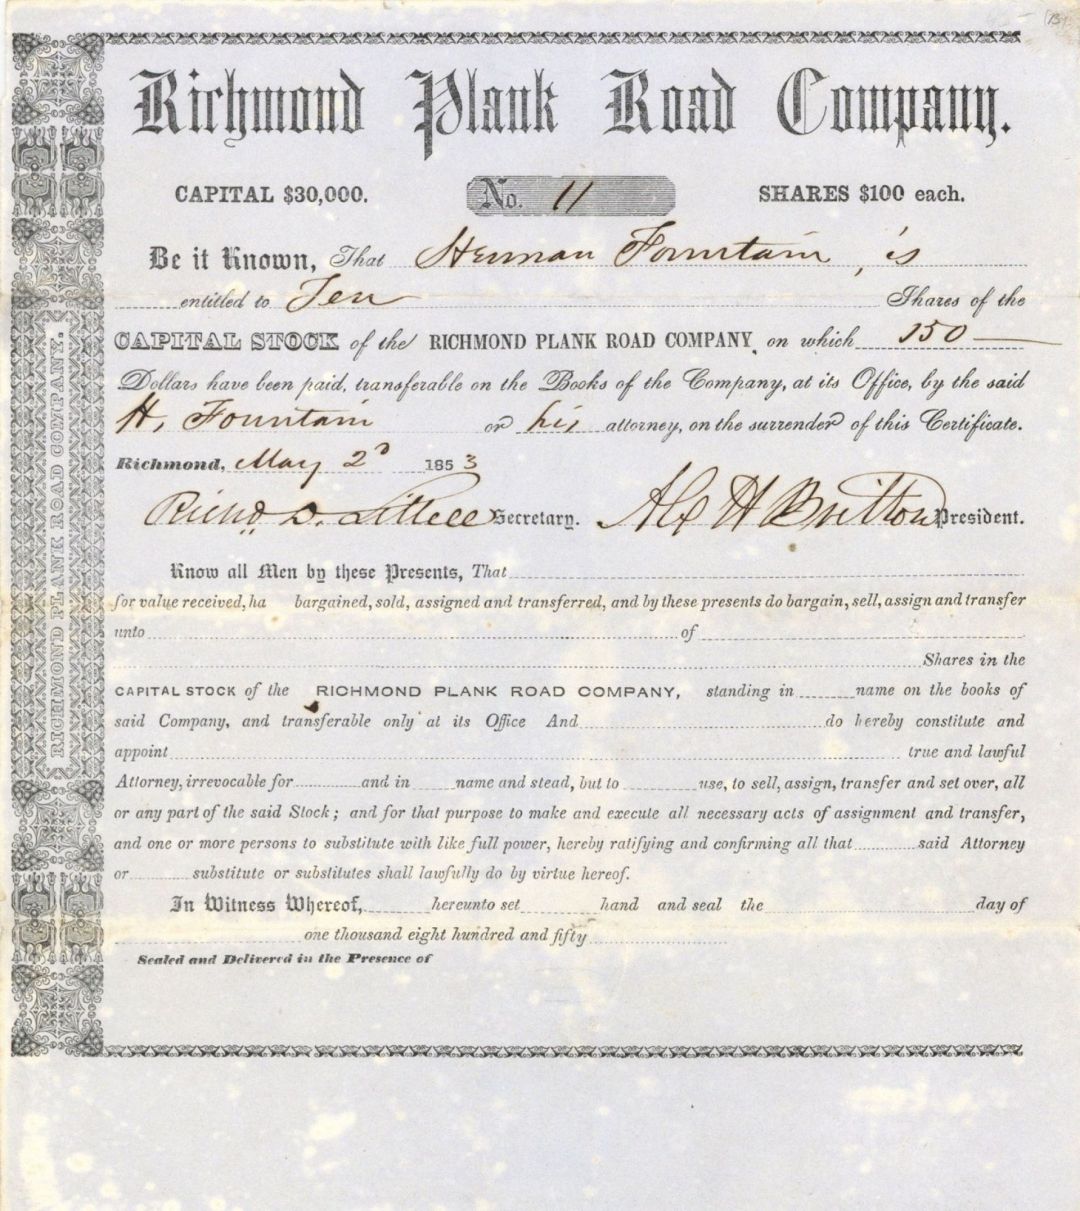 Richmond Plank Road Company.
CAPITAL $30,000. No. 11 SHARES $100 each.
Be it Known, That Herman Fountain, is
entitled to Ten Shares of the
CAPITAL STOCK of the RICHMOND PLANK ROAD COMPANY, on which 150
Dollars have been paid, transferable on the Books of the Company, at its Office, by the said
H. Fountain or his attorney, on the surrender of this Certificate.
Richmond, May 2d 1853
Richd D. Littell Secretary. Alx H Britton President.
Know all Men by these Presents, That
for value received, ha bargained, sold, assigned and transferred, and by these presents do bargain, sell, assign and transfer
unto of
Shares in the
CAPITAL STOCK of the RICHMOND PLANK ROAD COMPANY, standing in name on the books of
said Company, and transferable only at its Office And do hereby constitute and
appoint true and lawful
Attorney, irrevocable for and in name and stead, but to use, to sell, assign, transfer and set over, all
or any part of the said Stock; and for that purpose to make and execute all necessary acts of assignment and transfer,
and one or more persons to substitute with like full power, hereby ratifying and confirming all that said Attorney
or substitute or substitutes shall lawfully do by virtue hereof.
In Witness Whereof, hereunto set hand and seal the day of
one thousand eight hundred and fifty
Sealed and Delivered in the Presence of
RICHMOND PLANK ROAD COMPANY.